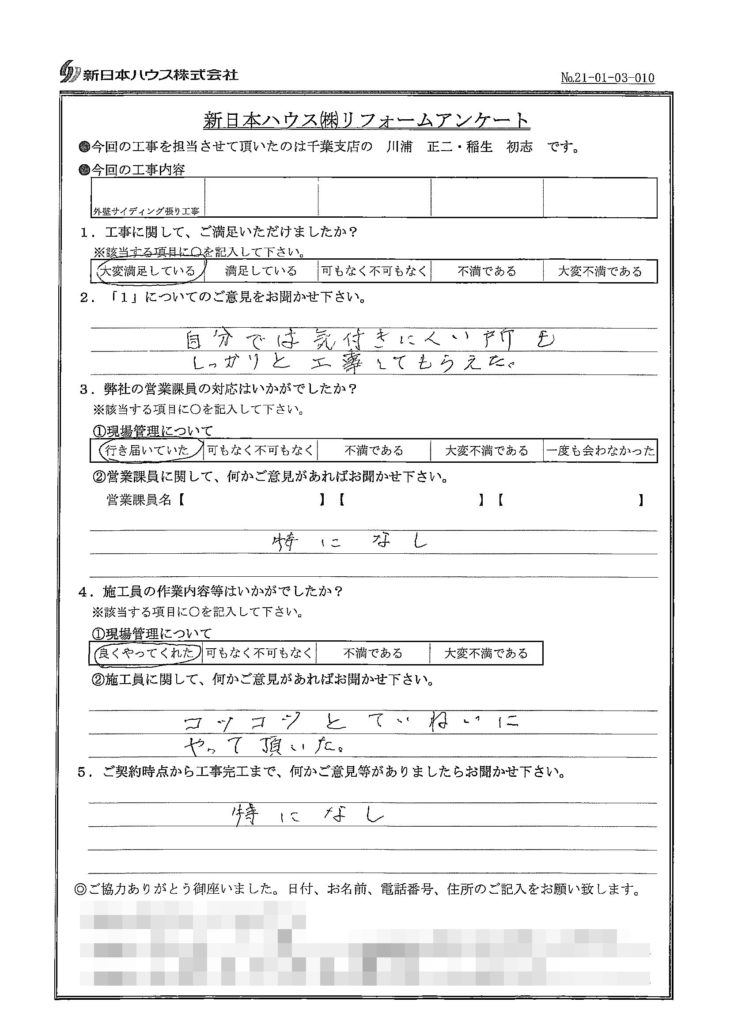 新日本ハウス株式会社
№21-01-03-010
新日本ハウス㈱リフォームアンケート
●今回の工事を担当させて頂いたのは千葉支店の 川浦 正二・稲生 初志 です。
●今回の工事内容
外壁サイディング張り工事
1．工事に関して、ご満足いただけましたか？
※該当する項目に○を記入して下さい。
大変満足している 満足している 可もなく不可もなく 不満である 大変不満である
2．「1」についてのご意見をお聞かせ下さい。
自分では気付きにくい所も
しっかりと工事してもらえた。
3．弊社の営業課員の対応はいかがでしたか？
※該当する項目に○を記入して下さい。
①現場管理について
行き届いていた 可もなく不可もなく 不満である 大変不満である 一度も会わなかった
②営業課員に関して、何かご意見があればお聞かせ下さい。
営業課員名【 】【 】【 】
特になし
4．施工員の作業内容等はいかがでしたか？
※該当する項目に○を記入して下さい。
①現場管理について
良くやってくれた 可もなく不可もなく 不満である 大変不満である
②施工員に関して、何かご意見があればお聞かせ下さい。
コツコツとていねいに
やって頂いた。
5．ご契約時点から工事完工まで、何かご意見等がありましたらお聞かせ下さい。
特になし
◎ご協力ありがとう御座いました。日付、お名前、電話番号、住所のご記入をお願い致します。